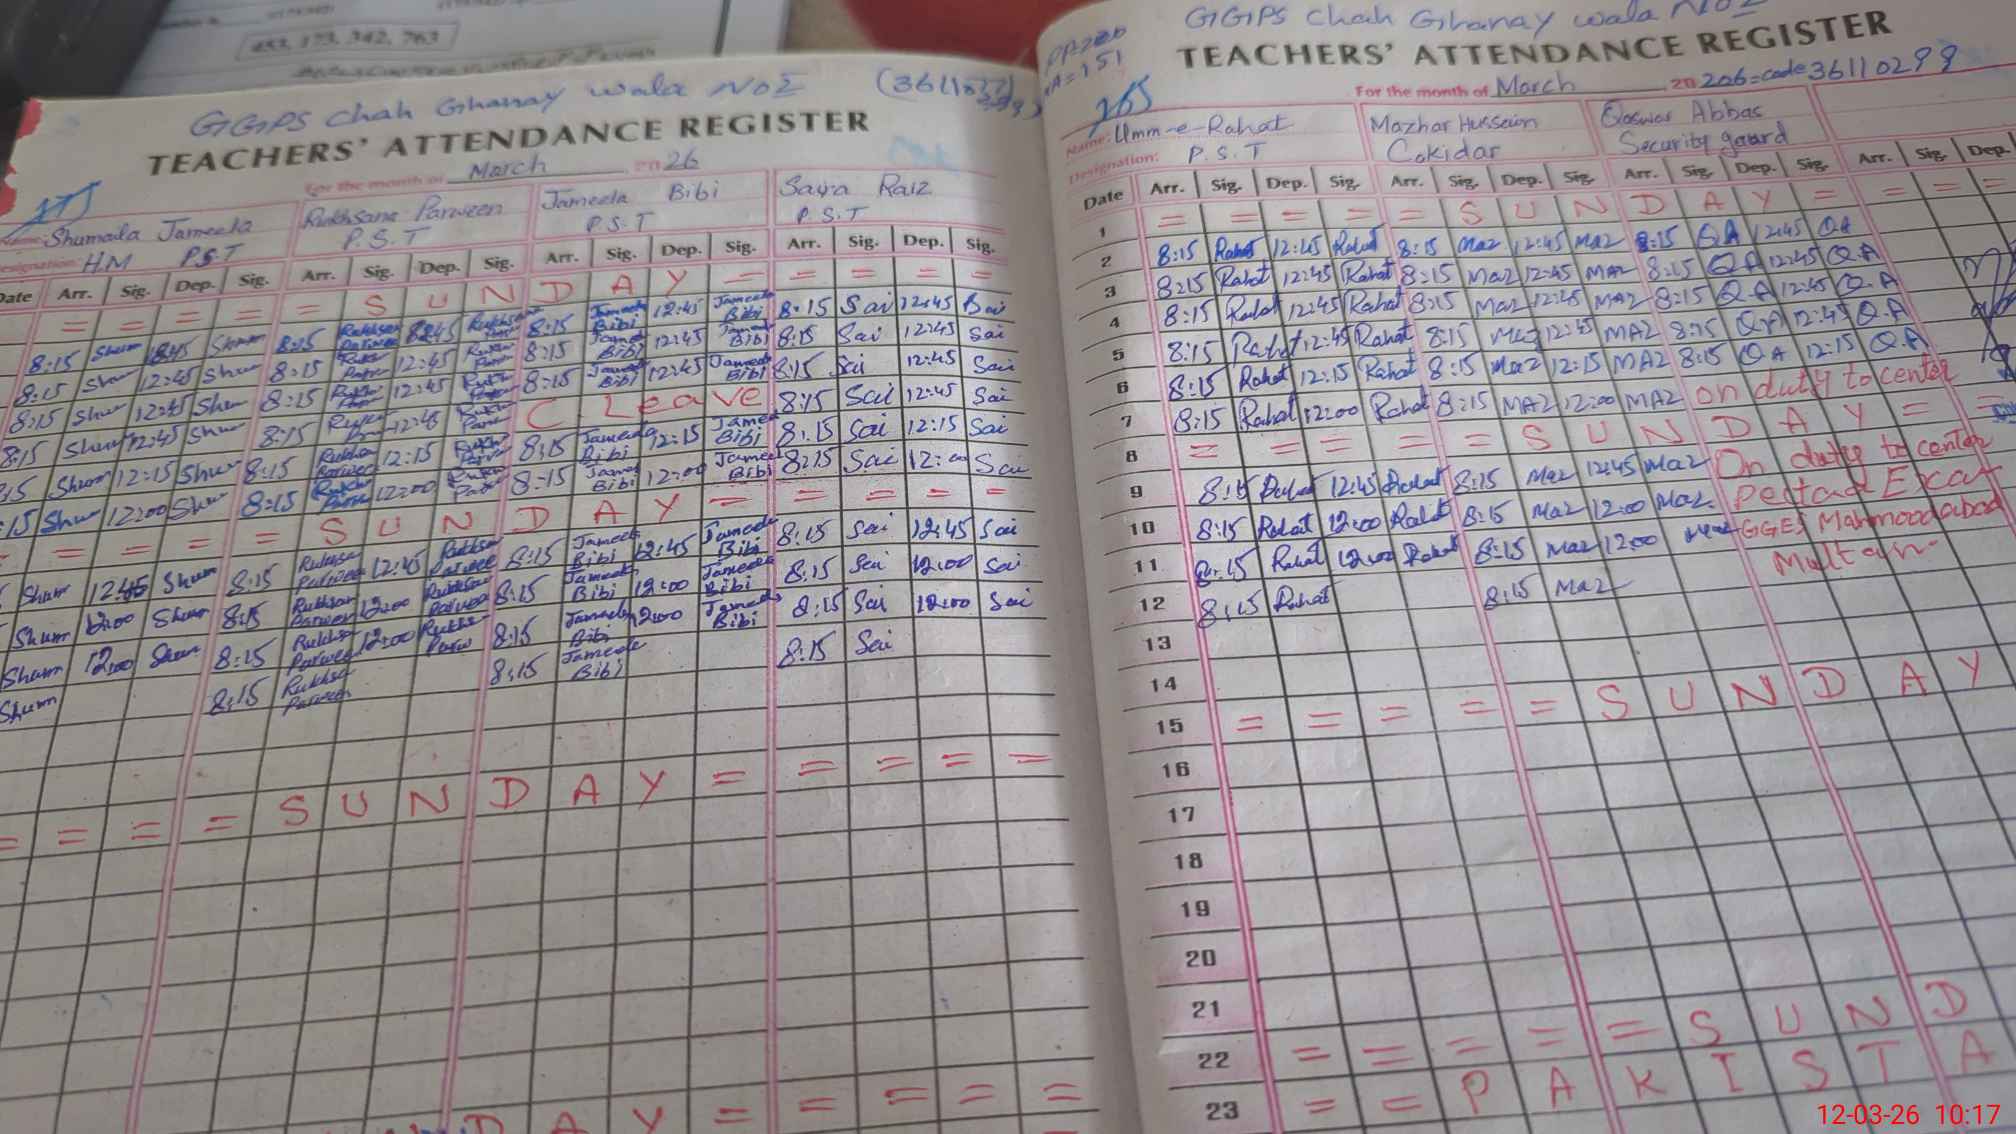 453, 173, 342, 763
GGPS Chah Ghanay wala No I
TEACHERS' ATTENDANCE REGISTER
For the month of March 2026
Name: Shumaila Jameela
Designation: H.M P.S.T
Rukhsana Parween
P.S.T
Jameela Bibi
P.S.T
Saira Raiz
P.S.T
Date Arr. Sig. Dep. Sig. Arr. Sig. Dep. Sig. Arr. Sig. Dep. Sig. Arr. Sig. Dep. Sig.
= = = = = S U N D A Y = = = = =
8:15 Shum 12:45 Shum 8:15 Rukhsan Parween 12:45 Rukhsana 8:15 Jameela Bibi 12:45 Jameela Bibi 8:15 Sai 12:45 Sai
8:15 Shum 12:45 Shum 8:15 12:45 8:15 Bibi 12:45 Bibi 8:15 Sai 12:45 Sai
8:15 Shum 12:45 Shum 8:15 12:45 8:15 Bibi 12:45 Jameela Bibi 8:15 Sai 12:45 Sai
8:15 Shum 12:45 Shum 8:15 12:45 C. Leave 8:15 Sai 12:45 Sai
Shum 12:15 Shum 8:15 12:15 8:15 Jameela Bibi 12:15 Jamee Bibi 8:15 Sai 12:15 Sai
:15 Shum 12:00 Shum 8:15 12:00 8:15 Bibi 12:00 Jamee Bibi 8:15 Sai 12:00 Sai
= = = = S U N D A Y = = = = =
Shum 12:45 Shum 8:15 Rukhsa Parwee 12:45 Rukhsa Parwee 8:15 Jameela Bibi 12:45 Jameela Bibi 8:15 Sai 12:45 Sai
Shum 12:00 Shum 8:15 Rukhsar 12:00 Rukhsar 8:15 Jameela Bibi 12:00 Jameela Bibi 8:15 Sai 12:00 Sai
Shum 12:00 Shum 8:15 Rukhsa Parwee 12:00 Rukhs 8:15 Jameela Bibi 12:00 Jameela Bibi 8:15 Sai 12:00 Sai
Shum 8:15 Rukhsa Parween 8:15 Jameela Bibi 8:15 Sai
= = = = S U N D A Y = = = = =
D A Y = = = = =
GGPS Chah Ghanay wala No I
TEACHERS' ATTENDANCE REGISTER
For the month of March 20 206=code 36110299
A=151
Name: Umm-e-Rahat
Designation: P.S.T
Mazhar Hussain
Cokidar
Qaswar Abbas
Security gaurd
Date Arr. Sig. Dep. Sig. Arr. Sig. Dep. Sig Arr. Sig Dep. Sig. Arr. Sig. Dep.
1 = = = = = S U N D A Y = = = =
2 8:15 Rahat 12:45 Rahat 8:15 Maz 12:45 MAZ 8:15 QA 12:45 QA
3 8:15 Rahat 12:45 Rahat 8:15 Maz 12:45 MAZ 8:15 Q.A 12:45 Q.A
4 8:15 Rahat 12:45 Rahat 8:15 Maz 12:45 MAZ 8:15 Q.A 12:45 Q.A
5 8:15 Rahat 12:45 Rahat 8:15 Maz 12:45 MAZ 8:15 Q.A 12:45 Q.A
6 8:15 Rahat 12:15 Rahat 8:15 Maz 12:15 MAZ 8:15 QA 12:15 Q.A
7 8:15 Rahat 12:00 Rahat 8:15 MAZ 12:00 MAZ on duty to center
8 = = = = = S U N D A Y = =
9 8:15 Rahat 12:45 Rahat 8:15 Maz 12:45 Maz On duty to center
10 8:15 Rahat 12:00 Rahat 8:15 Maz 12:00 Maz. Pectad Excat
11 8:15 Rahat 12:00 Rahat 8:15 Maz 12:00 Maz GGES Mahmoodabad
12 8:15 Rahat 8:15 Maz Multan
13
14
15 = = = = = S U N D A Y
16
17
18
19
20
21
22 = = = = = S U N D
23 = = P A K I S T A
12-03-26 10:17